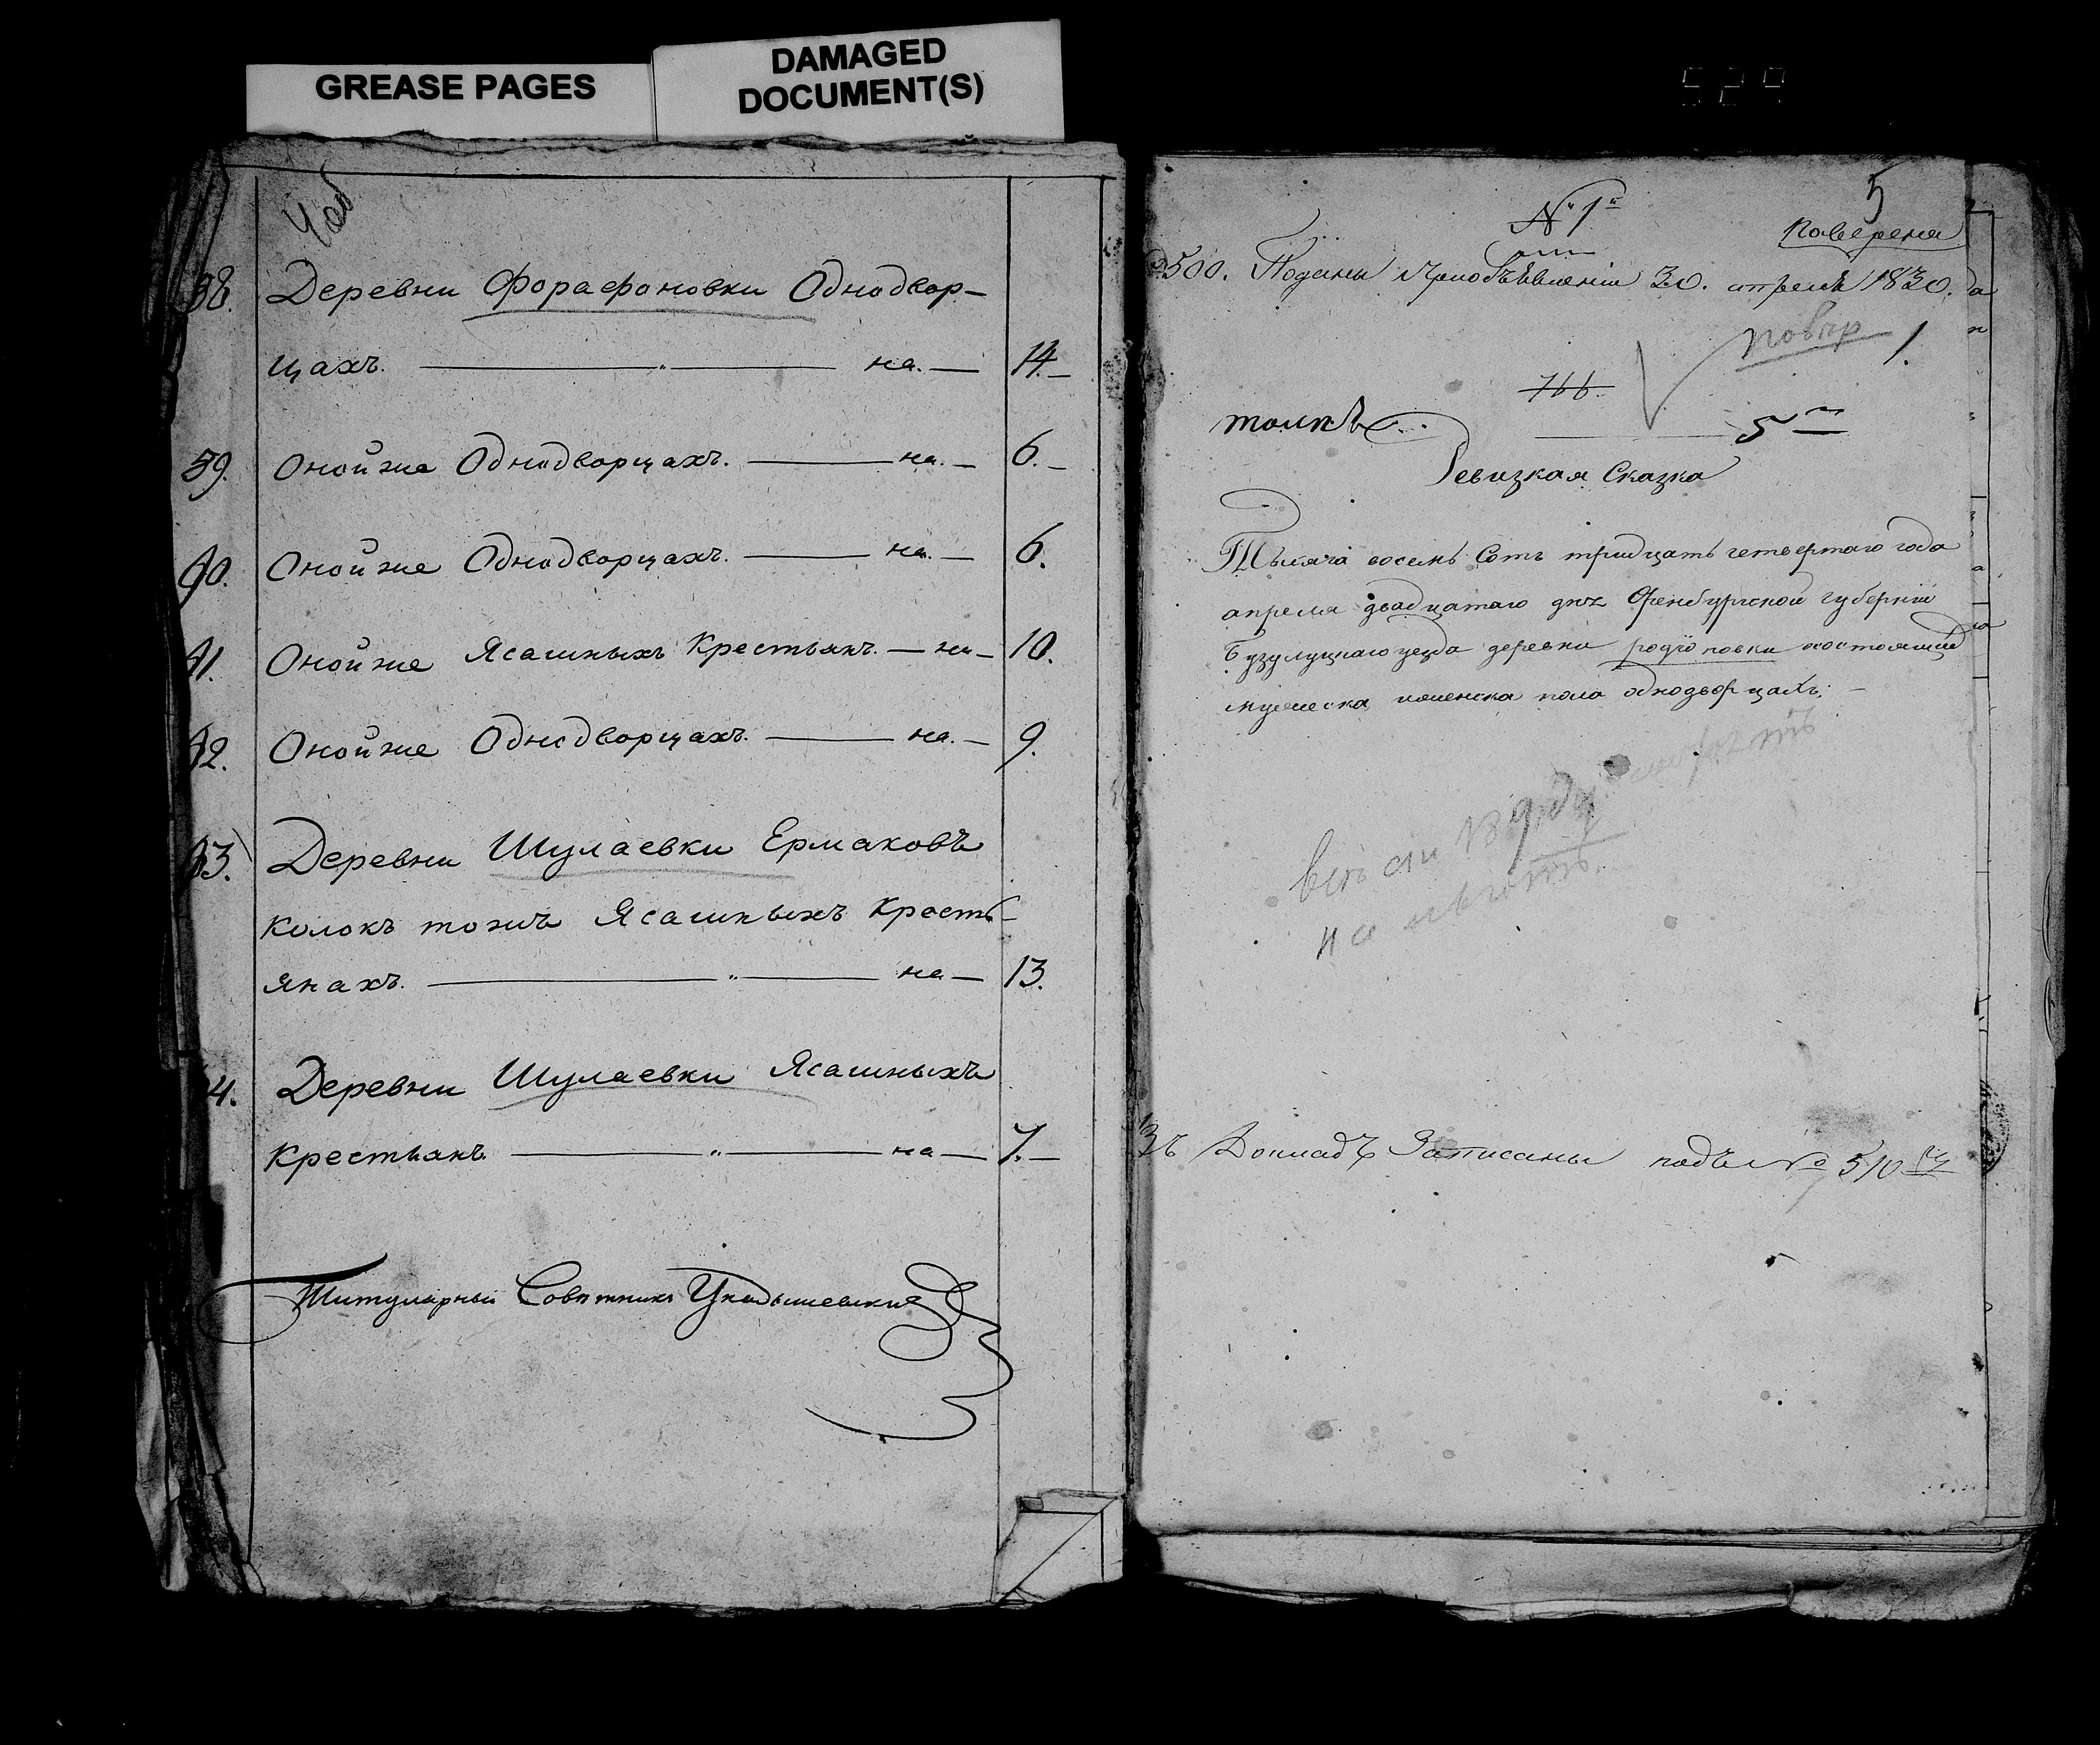 GREASE PAGES
DAMAGED
DOCUMENT(S)
38. Деревни Форафоновки Однодвор-
цахъ. — " — на. — 14. —
39. Онойже Однодворцахъ. — на. — 6. —
40. Онойже Однодворцахъ. — на. — 6.
41. Онойже Ясашныхъ Крестьянъ. — на — 10.
42. Онойже Однодворцахъ. — на. — 9.
43. Деревни Шулаевки Ермаковъ
Колокъ тожъ Ясашныхъ Кресть-
янахъ. — " — на — 13.
44. Деревни Шулаевки Ясашныхъ
Крестьянъ. — " — на — 7. —
Титулярный Советникъ
5
№ 1й
Поверена
500. Поданы приобъявленiи 30. апреля 1830.
повер
1.
766.
5
Ревизкая Сказка
Тысяча восемь Сотъ тридцать четвертаго года
апреля двадцатаго дня Оренбургской губернiи
Бузулуцкаго уезда деревни родiоновки
мужеска иженска пола однодворцахъ. —
Въ Докладъ Записаны подъ № 510